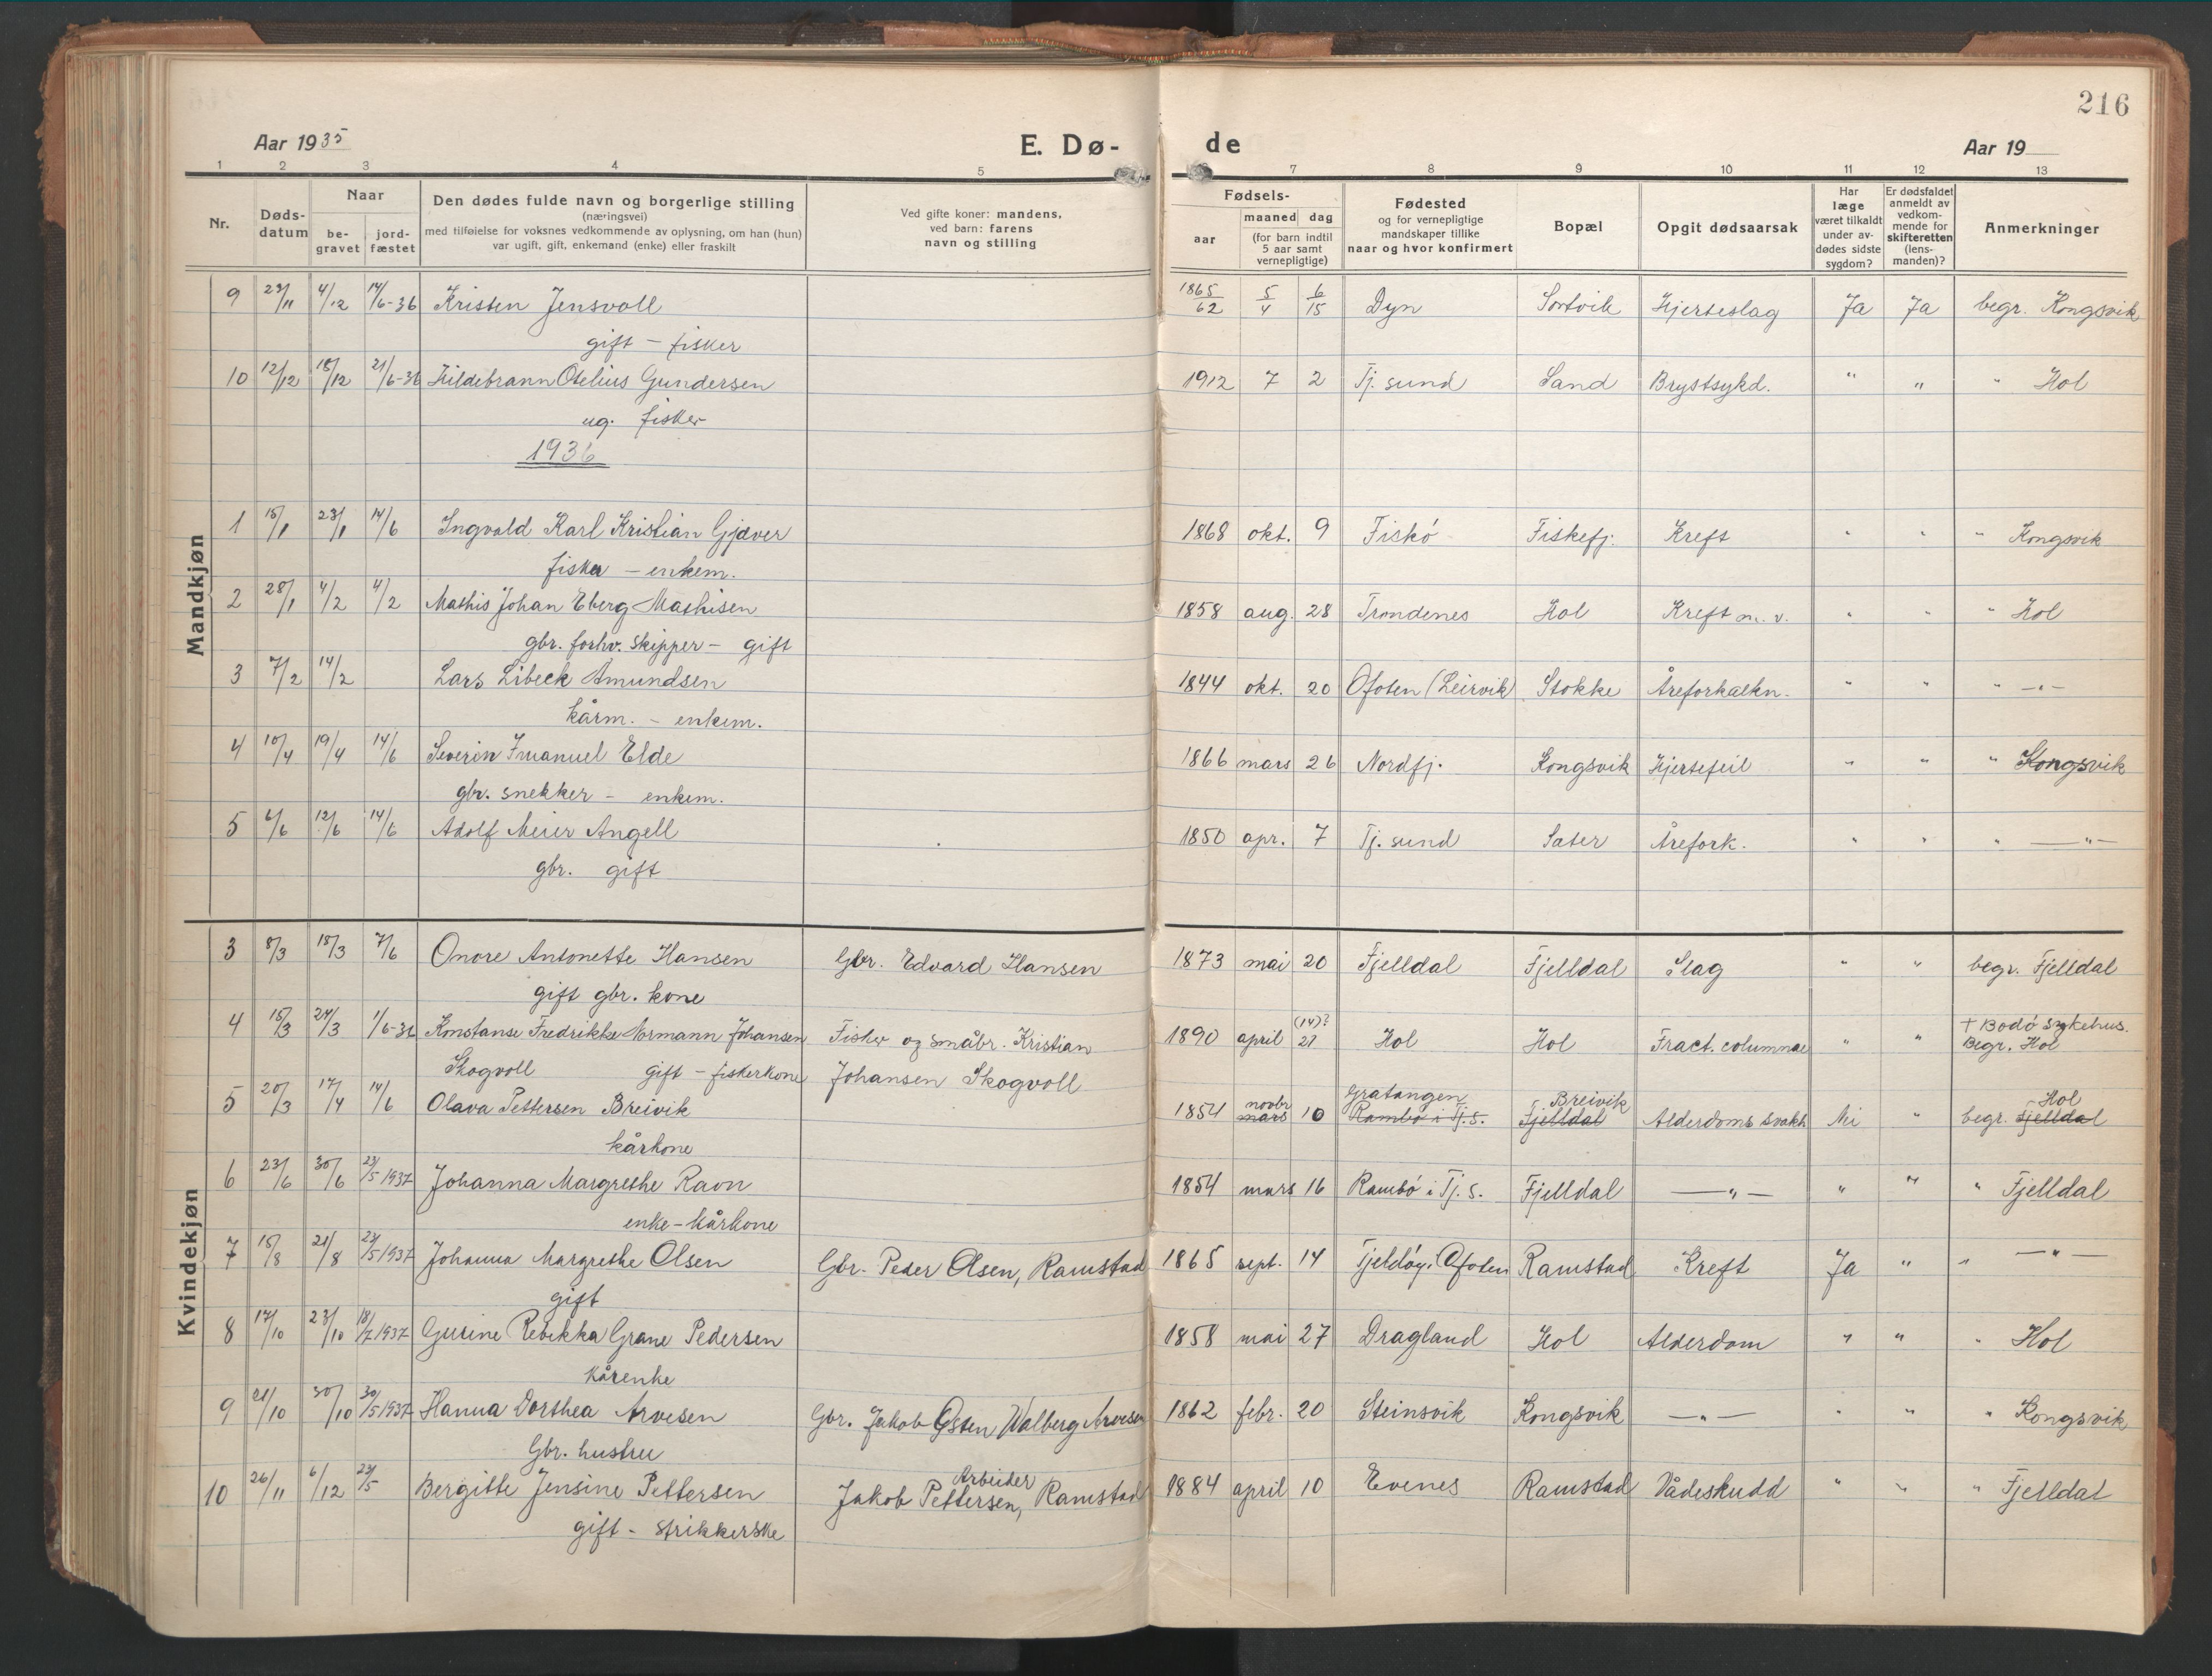 216
Aar 1935 E. Dø- de Aar 19
1 2 3 4 5 7 8 9 10 11 12 13
Nr. Døds-datum Naar be-gravet jord-fæstet Den dødes fulde navn og borgerlige stilling (næringsvei) med tilføielse for voksnes vedkommende av oplysning, om han (hun) var ugift, gift, enkemand (enke) eller fraskilt Ved gifte koner: mandens, ved barn: farens navn og stilling Fødsels- aar maaned dag (for barn indtil 5 aar samt vernepligtige) Fødested og for vernepligtige mandskaper tillike naar og hvor konfirmert Bopæl Opgit dødsaarsak Har læge været tilkaldt under av-dødes sidste sygdom? Er dødsfaldet anmeldt av vedkom-mende for skifteretten (lens-manden)? Anmerkninger
Mandkjøn
9 29/11 4/12 14/6-36 Kristen Jensvoll 1865/62 5/4 6/15 Dyn Sortvik Hjerteslag Ja Ja begr. Kongsvik
gift - fisker
10 12/12 18/12 21/6-36 Hildebrann Otelius Gundersen 1912 7 2 Tj. sund Sand Brystsykd. " " " Hol
ug. fisker
1936
1 15/1 23/1 14/6 Ingvald Karl Kristian Gjæver 1868 okt. 9 Fiskö Fiskefj. Kreft " " " Kongsvik
fisker - enkem.
2 28/1 4/2 4/2 Mathis Johan Eberg Mathisen 1858 aug. 28 Trondenes Hol Kreft m. v. " " " Hol
gbr. forhv. skipper - gift
3 7/2 14/2 Lars Libeck Amundsen 1844 okt. 20 Ofoten (Leirvik) Stokke Åreforkalkn. " " " -"-
kårm. - enkem.
4 10/4 19/4 14/6 Severin Imanuel Elde 1866 mars 26 Nordfj. Kongsvik Hjertefeil " " " Kongsvik
gbr. snekker - enkem.
5 6/6 12/6 14/6 Adolf Meier Angell 1850 apr. 7 Tj. sund Sater Årefork. " " " -"-
gbr. gift
Kvindekjøn
3 8/3 15/3 7/6 Onore Antonette Hansen Gbr. Edvard Hansen 1873 mai 20 Fjelldal Fjelldal Slag " " begr. Fjelldal
gift gbr. kone
4 15/3 24/3 1/6-36 Konstanse Fredrikke Normann Johansen Fisker og småbr. Kristian 1890 april (14)? 27 Hol Hol Fract. columnae " " + Bodö sykehus.
Begr. Hol
Skogvoll gift - fiskerkone Johansen Skogvoll
5 20/3 17/4 14/6 Olava Pettersen Breivik 1854 novbr mars 10 Gratangen Rambö i Tj. S. Breivik Fjelldal Alderdoms svakh Nei " begr. Hol Fjelldal
kårkone
6 23/6 30/6 23/5 1937 Johanna Margrethe Ravn 1854 mars 16 Rambö i Tj. S. Fjelldal -"- " " " Fjelldal
enke - kårkone
7 15/8 21/8 23/5 1937 Johanna Margrethe Olsen Gbr. Peder Olsen, Ramstad 1865 sept. 14 Tjeldöy i Ofoten Ramstad Kreft Ja " " -"-
gift
8 17/10 23/10 18/7 1937 Gurine Rebekka Grane Pedersen 1858 mai 27 Dragland Hol Alderdom " " " Hol
kårenke
9 21/10 30/10 30/5 1937 Hanna Dorthea Arvesen Gbr. Jakob Östen Walberg Arvesen 1862 febr. 20 Steinsvik Kongsvik -"- " " " Kongsvik
Gbr. hustru
10 26/11 6/12 23/5 Bergitte Jensine Pettersen Arbeider Jakob Pettersen, Ramstad 1884 april 10 Evenes Ramstad Vådeskudd " " " Fjelldal
gift - strikkerske